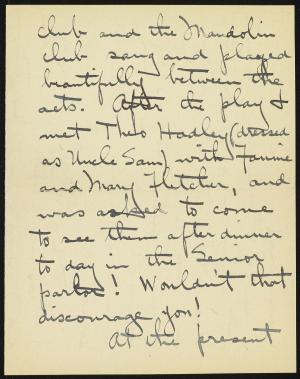 club and the Mandolin
club sang and played
beautifully between the
acts. After the play I
met Theo Hadley (dressed
as Uncle Sam) with Fannie
and Mary Fletcher, and
was asked to come
to see them after dinner
to day in the Senior
parlor! Wouldn't that
discourage you!
At the present